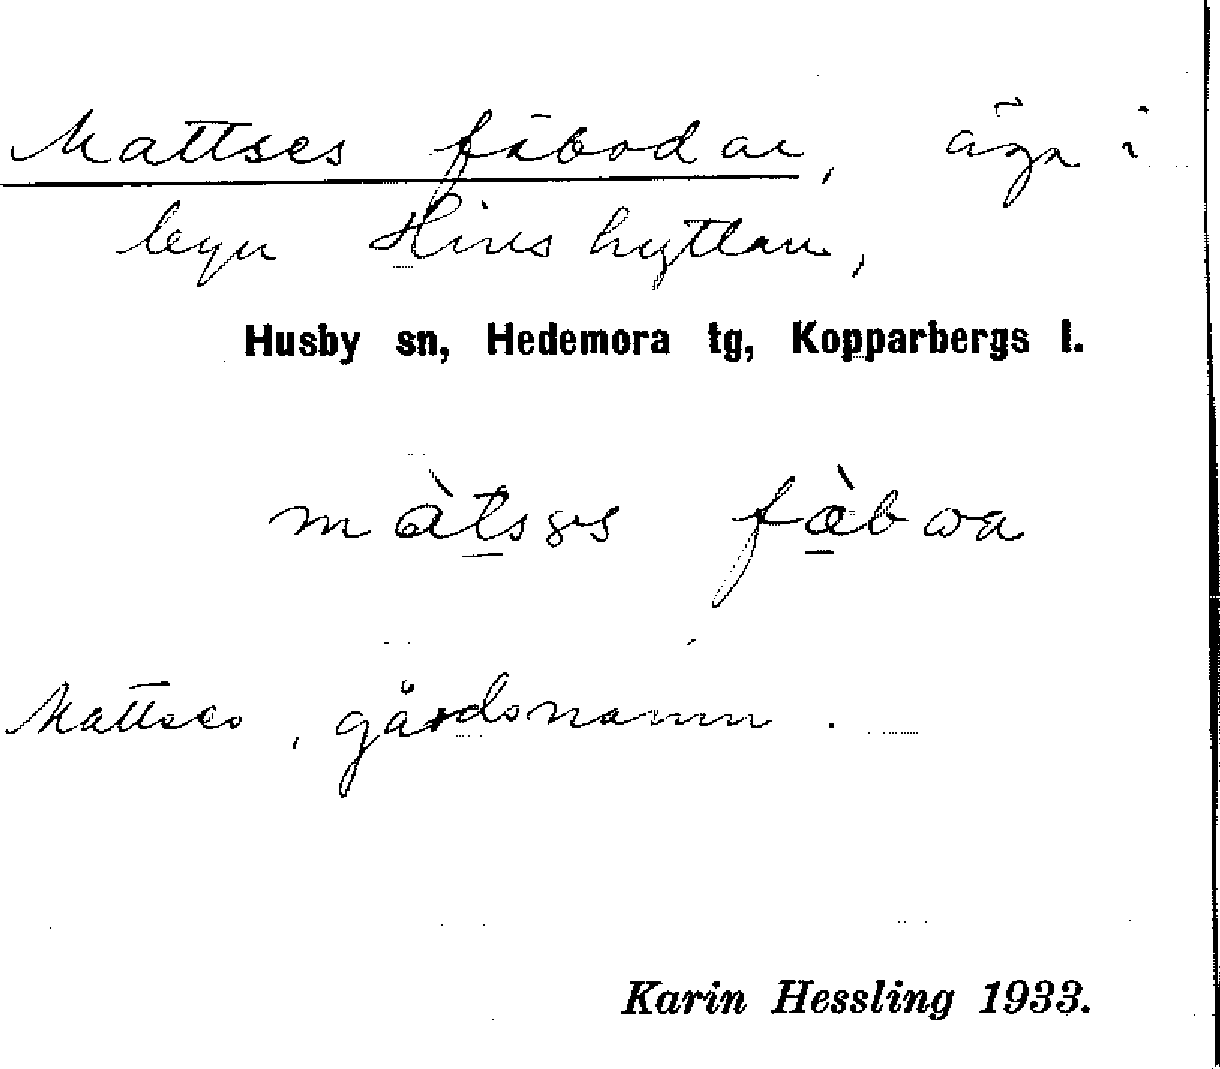 Mattses fäbodar, äga i
byn Hinshyttan,
Husby sn, Hedemora tg, Kopparbergs l.
Mattses, gårdsnamn.
Karin Hessling 1933.